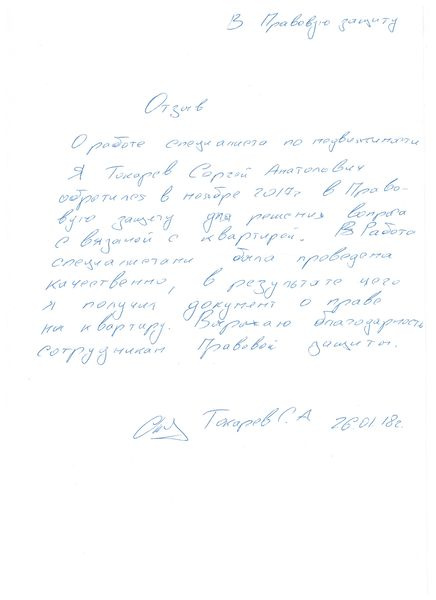 В Правовую защиту
Отзыв
О работе специалиста по недвижимости
Я Токарев Сергей Анатолович
обратился в ноябре 2017г в Право-
вую защиту для решения вопроса
связаной с квартирой. В Работа
специалистами была проведена
качественно, в результате чего
я получил документ о праве
на квартиру. Выражаю благодарность
сотрудникам Правовой защиты.
Токарев С.А 26.01.18г.